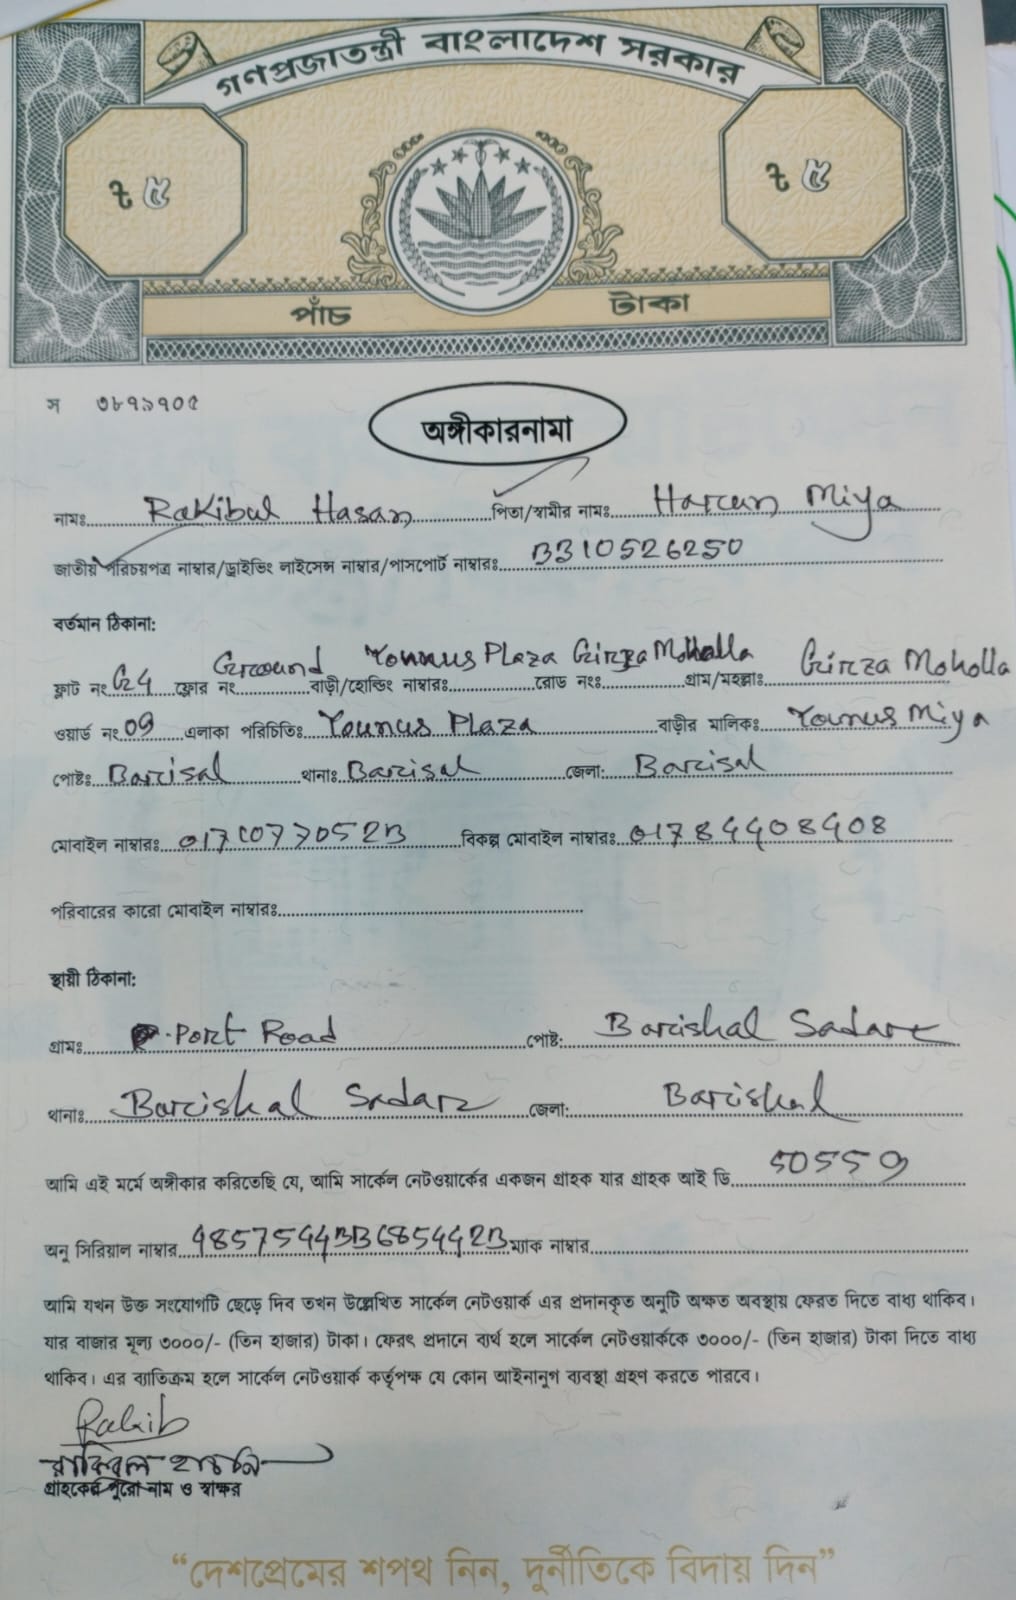 গণপ্রজাতন্ত্রী বাংলাদেশ সরকার
৳ ৫ ৳ ৫
পাঁচ টাকা
স ৩৮৭১৭০৫
অঙ্গীকারনামা
নামঃ Rakibul Hasan পিতা/স্বামীর নামঃ Harun Miya
জাতীয় পরিচয়পত্র নাম্বার/ড্রাইভিং লাইসেন্স নাম্বার/পাসপোর্ট নাম্বারঃ 3310526250
বর্তমান ঠিকানা:
ফ্লাট নং G4 ফ্লোর নং Ground বাড়ী/হোল্ডিং নাম্বারঃ Younus Plaza Girza Moholla রোড নংঃ গ্রাম/মহল্লাঃ Girza Moholla
ওয়ার্ড নং 09 এলাকা পরিচিতিঃ Younus Plaza বাড়ীর মালিকঃ Younus Miya
পোষ্টঃ Barisal থানাঃ Barisal জেলা: Barisal
মোবাইল নাম্বারঃ বিকল্প মোবাইল নাম্বারঃ 01784408408
পরিবারের কারো মোবাইল নাম্বারঃ
স্থায়ী ঠিকানা:
গ্রামঃ Port Road পোষ্ট: Barishal Sadar
থানাঃ Barishal Sadar জেলা: Barishal
আমি এই মর্মে অঙ্গীকার করিতেছি যে, আমি সার্কেল নেটওয়ার্কের একজন গ্রাহক যার গ্রাহক আই ডি 50559
অনু সিরিয়াল নাম্বার 485754433685442B ম্যাক নাম্বার
আমি যখন উক্ত সংযোগটি ছেড়ে দিব তখন উল্লেখিত সার্কেল নেটওয়ার্ক এর প্রদানকৃত অনুটি অক্ষত অবস্থায় ফেরত দিতে বাধ্য থাকিব।
যার বাজার মূল্য ৩০০০/- (তিন হাজার) টাকা। ফেরৎ প্রদানে ব্যর্থ হলে সার্কেল নেটওয়ার্ককে ৩০০০/- (তিন হাজার) টাকা দিতে বাধ্য
থাকিব। এর ব্যাতিক্রম হলে সার্কেল নেটওয়ার্ক কর্তৃপক্ষ যে কোন আইনানুগ ব্যবস্থা গ্রহণ করতে পারবে।
Rakib
রাকিবুল হাসান
গ্রাহকের পুরো নাম ও স্বাক্ষর
“দেশপ্রেমের শপথ নিন, দুর্নীতিকে বিদায় দিন”